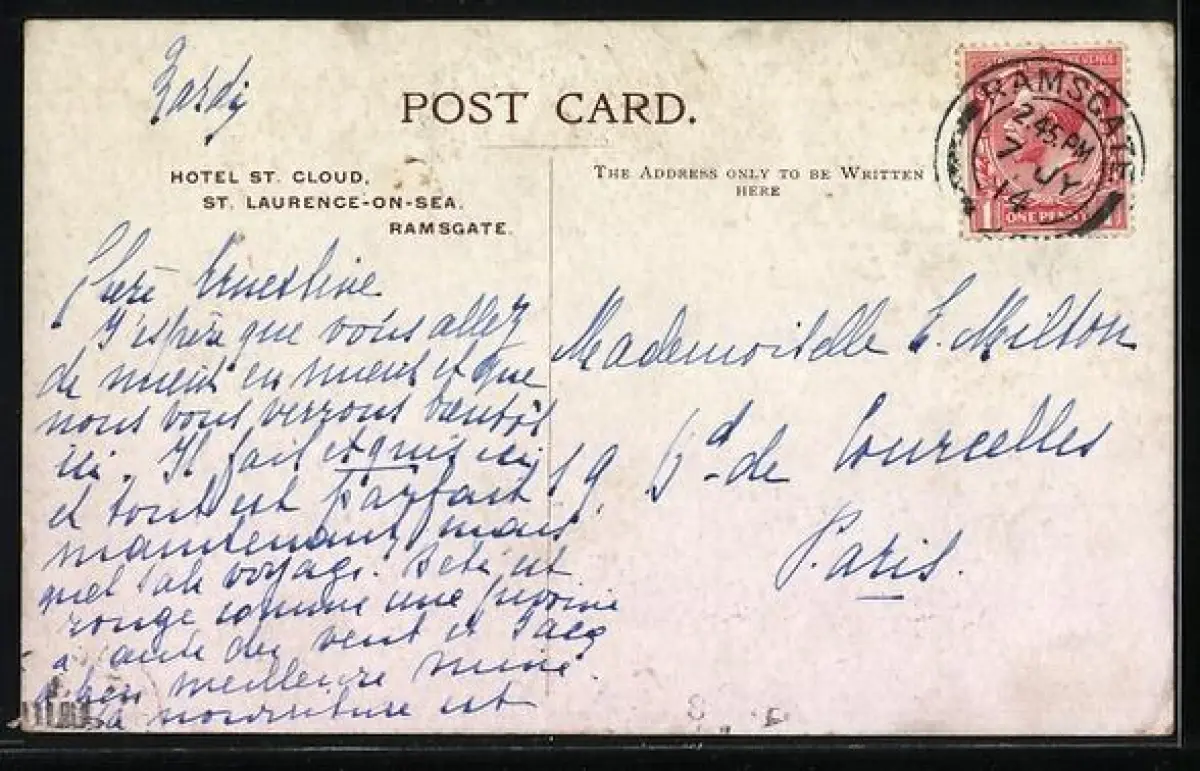 Mardi
POST CARD.
HOTEL ST. CLOUD,
ST. LAURENCE-ON-SEA,
RAMSGATE.
THE ADDRESS ONLY TO BE WRITTEN
HERE
RAMSGATE
2.45 PM
7 JY
14
ONE PENNY
Chère Ernestine
J'espère que vous allez
de mieux en mieux et que
nous vous verrons bientôt
ici. Il fait exquis ici
et tout est parfait
maintenant, mais
quel sale voyage. Bébé est
rouge comme une pivoine
à cause du vent et Jacq
a bien meilleure mine.
La nourriture est
Mademoiselle E. Milton
19 Bd de Courcelles
Paris.